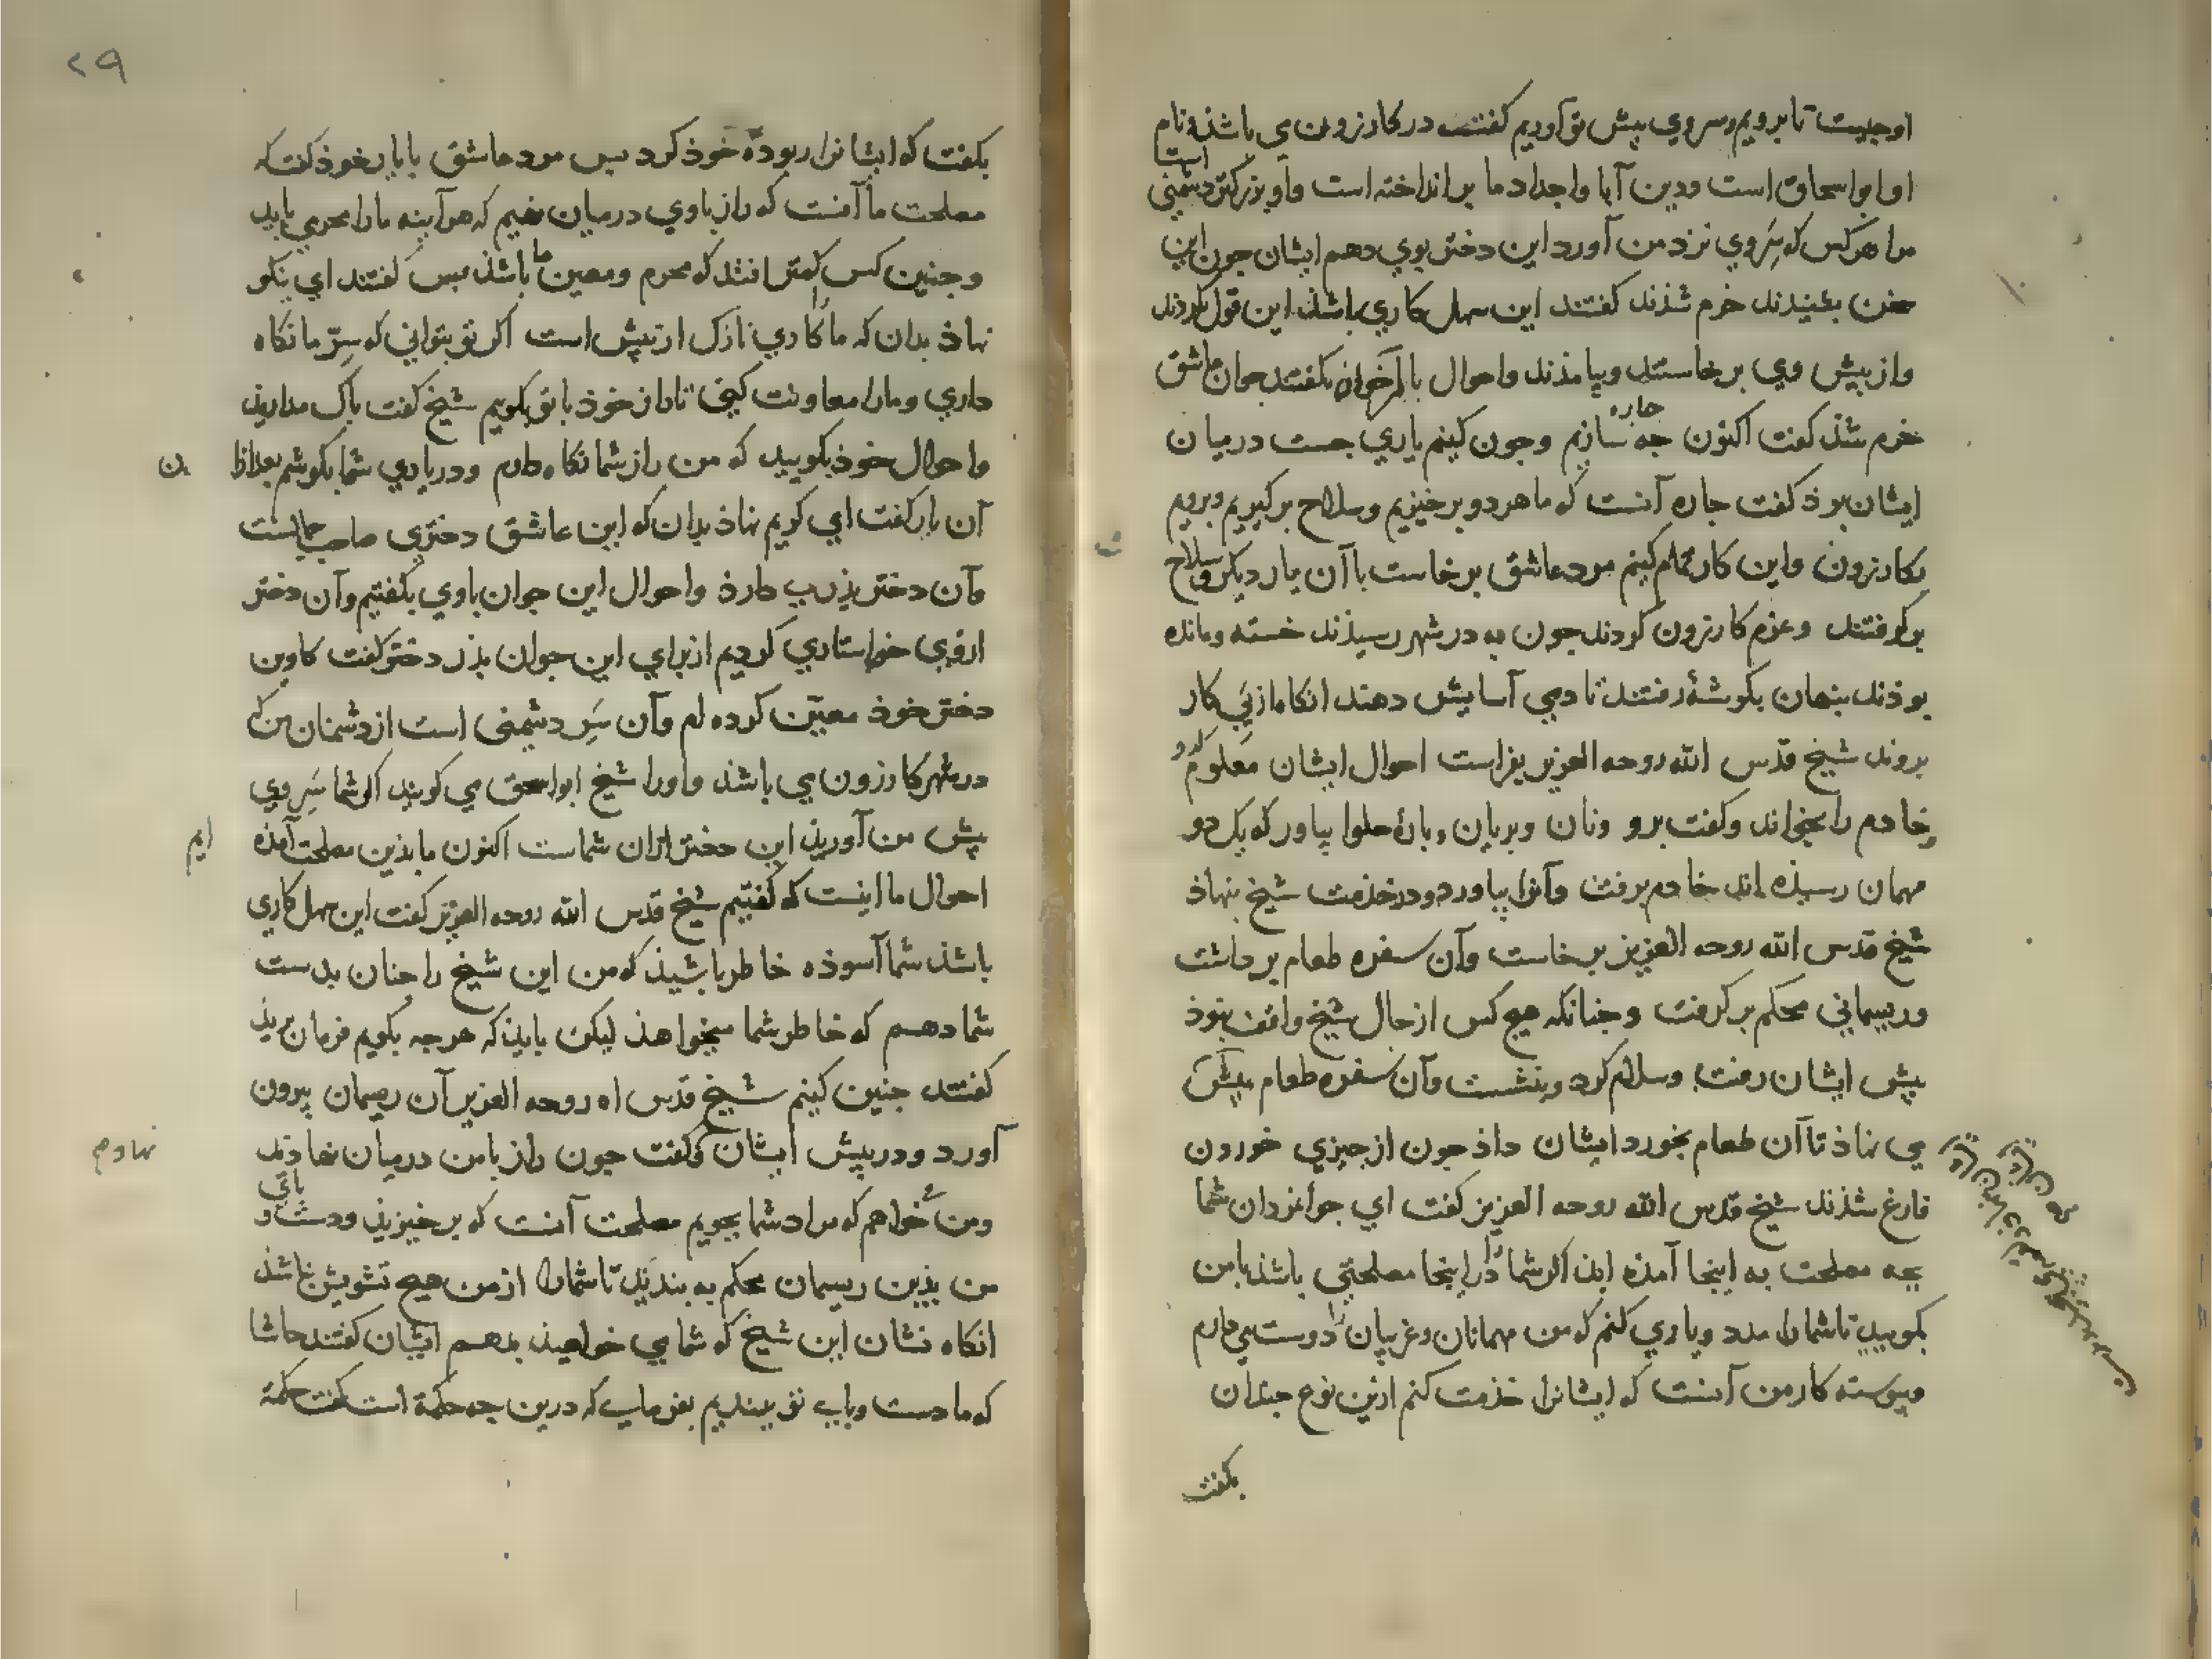 اوجیست تا برویم و سروی پیش تو آوریم کفتند در کازرون می باشذ و نام
او ابو اسحاق است ودین آبا واجداد ما بر انداخته است واو بزرکتر دشمنی است
مرا هرکس که سَروی نزد من آورد این دختر بوی دهم ایشان جون این
سخن بشنیدند خرم شذند کفتند این سهل کاری باشذ این قول کردند
واز پیش وی برخاستند وبیامذند واحوال با آن جوان بکفتند جوان عاشق
خرم شذ کفت اکنون جه جاره سازیم وجون کنیم یاری جست در میان
ایشان بوذ کفت جاره آنست که ما هر دو برخیزیم وسلاح برکیریم وبرویم
بکازرون واین کار تمام کنیم مرد عاشق برخاست با آن یار دیکر وسلاح
برکرفتند وعزم کازرون کردند جون به در شهر رسیذند خسته ومانده
بوذند بنهان بکوشهٔ رفتند تا دمی آسایش دهند انکاه از پی کار
بروند شیخ قدس الله روحه العزیز بفراست احوال ایشان معلوم کرد
وخادم را بخواند وکفت برو ونان وبریان وبارهٔ حلوا بیاور که یک دو
مهمان رسیذه اند خادم برفت وآنرا بیاورد ودر خذمت شیخ بنهاذ
شیخ قدس الله روحه العزیز برخاست وآن سفره طعام برداشت
وریسمانی محکم برکرفت وجنانکه هیج کس از حال شیخ واقف نبوذ
پیش ایشان رفت وسلام کرد وبنشست وآن سفره طعام پیش
می نهاذ تا آن طعام بخورد ایشان داذ جون از جیزی خوردن
فارغ شذند شیخ قدس الله روحه العزیز کفت ای جوانمردان شما
بجه مصلحت به اینجا آمذه ایذ اکر شما را در اینجا مصلحتی باشذ با من
بکویید تا شمارا مدد ویاری کنم که من مهمانان وغریبان را دوست می دارم
وپیوسته کار من آنست که ایشانرا خذمت کنم ازین نوع جندان
بکفت
۲۹
بکفت که ایشانرا ربوذهٔ خوذ کرد پس مرد عاشق با یار خوذ کفت که
مصلحت ما آنست که راز باوی در میان نهیم که هر آینه ما را محرمی باید
وجنین کس کمتر افتد که محرم ومعین ما باشذ پس کفتند ای نیکو
نهاذ بدان که ما را کاری نازک از پیش است اکر تو بتوانی که سِرّ ما نکاه
داری ومارا معاونت کنی تا راز خوذ با تو بکویم شیخ کفت باک مداریذ
واحوال خوذ بکویید که من راز شما نکاه دارم ودر یاری شما بکوشم بعد از
آن یار کفت ای کریم نهاذ بدان که این عاشق دختری صاحب جمالست
وآن دختر پذری دارذ واحوال این جوان باوی بکفتیم وآن دختر
ازوی خواستاری کردیم از برای این جوان پذر دختر کفت کاوین
دختر خوذ معیّن کرده ام وآن سَرِ دشمنی است از دشمنان من که
در شهر کازرون می باشذ واورا شیخ ابو اسحق می کویند اکر شما سَرِ وی
پیش من آورید این دختر ازان شماست اکنون ما بذین مصلحت آمذه
ایم
احوال ما اینست که کفتیم شیخ قدس الله روحه العزیز کفت این سهل کاری
باشذ شما آسوذه خاطر باشیذ که من این شیخ را جنان بدست
شما دهم که خاطر شما میخواهذ لیکن بایذ که هر جه بکویم فرمان بریذ
کفتند جنین کنیم شیخ قدس اه روحه العزیز آن ریسمان بیرون
آورد ودر پیش ایشان وکفت جون راز با من در میان نهادند
نهاد
ومن می خواهم که مراد شما بجویم مصلحت آنست که برخیزیذ ودست و پای
من بذین ریسمان محکم به بندید تا شمارا از من هیج تشویش نباشذ
انکاه نشان این شیخ که شما می خواهیذ بدهم ایشان کفتند حاشا
که ما دست وپای تو ببندیم بفرمای که درین جه حکمة است کفت حکمة